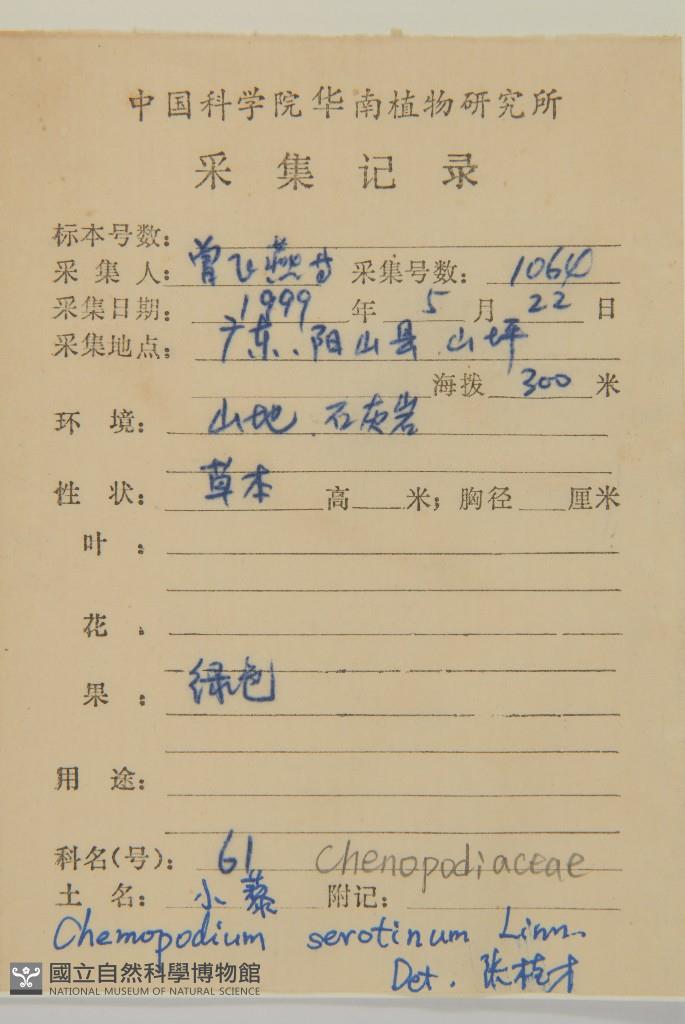 中国科学院华南植物研究所
采集记录
标本号数:
采集人: 曾飞燕等 采集号数: 1064
采集日期: 1999 年 5 月 22 日
采集地点: 广东、阳山县 山坪
海拨 300 米
环境: 山地 石灰岩
性状: 草本 高 米; 胸径 厘米
叶:
花:
果: 绿色
用途:
科名(号): 61 Chenopodiaceae
土名: 小藜 附记:
Chemopodium serotinum Linn.
Det. 张桂才
國立自然科學博物館
NATIONAL MUSEUM OF NATURAL SCIENCE